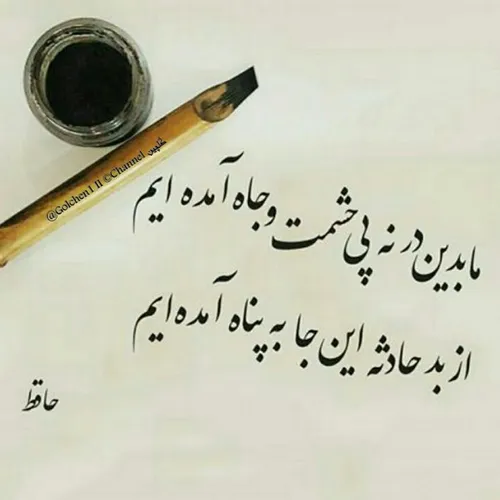 گلچین @Golchen1.II ©Channel
ما بدین در نه پی حشمت و جاه آمده ایم
از بد حادثه این جا به پناه آمده ایم
حافظ